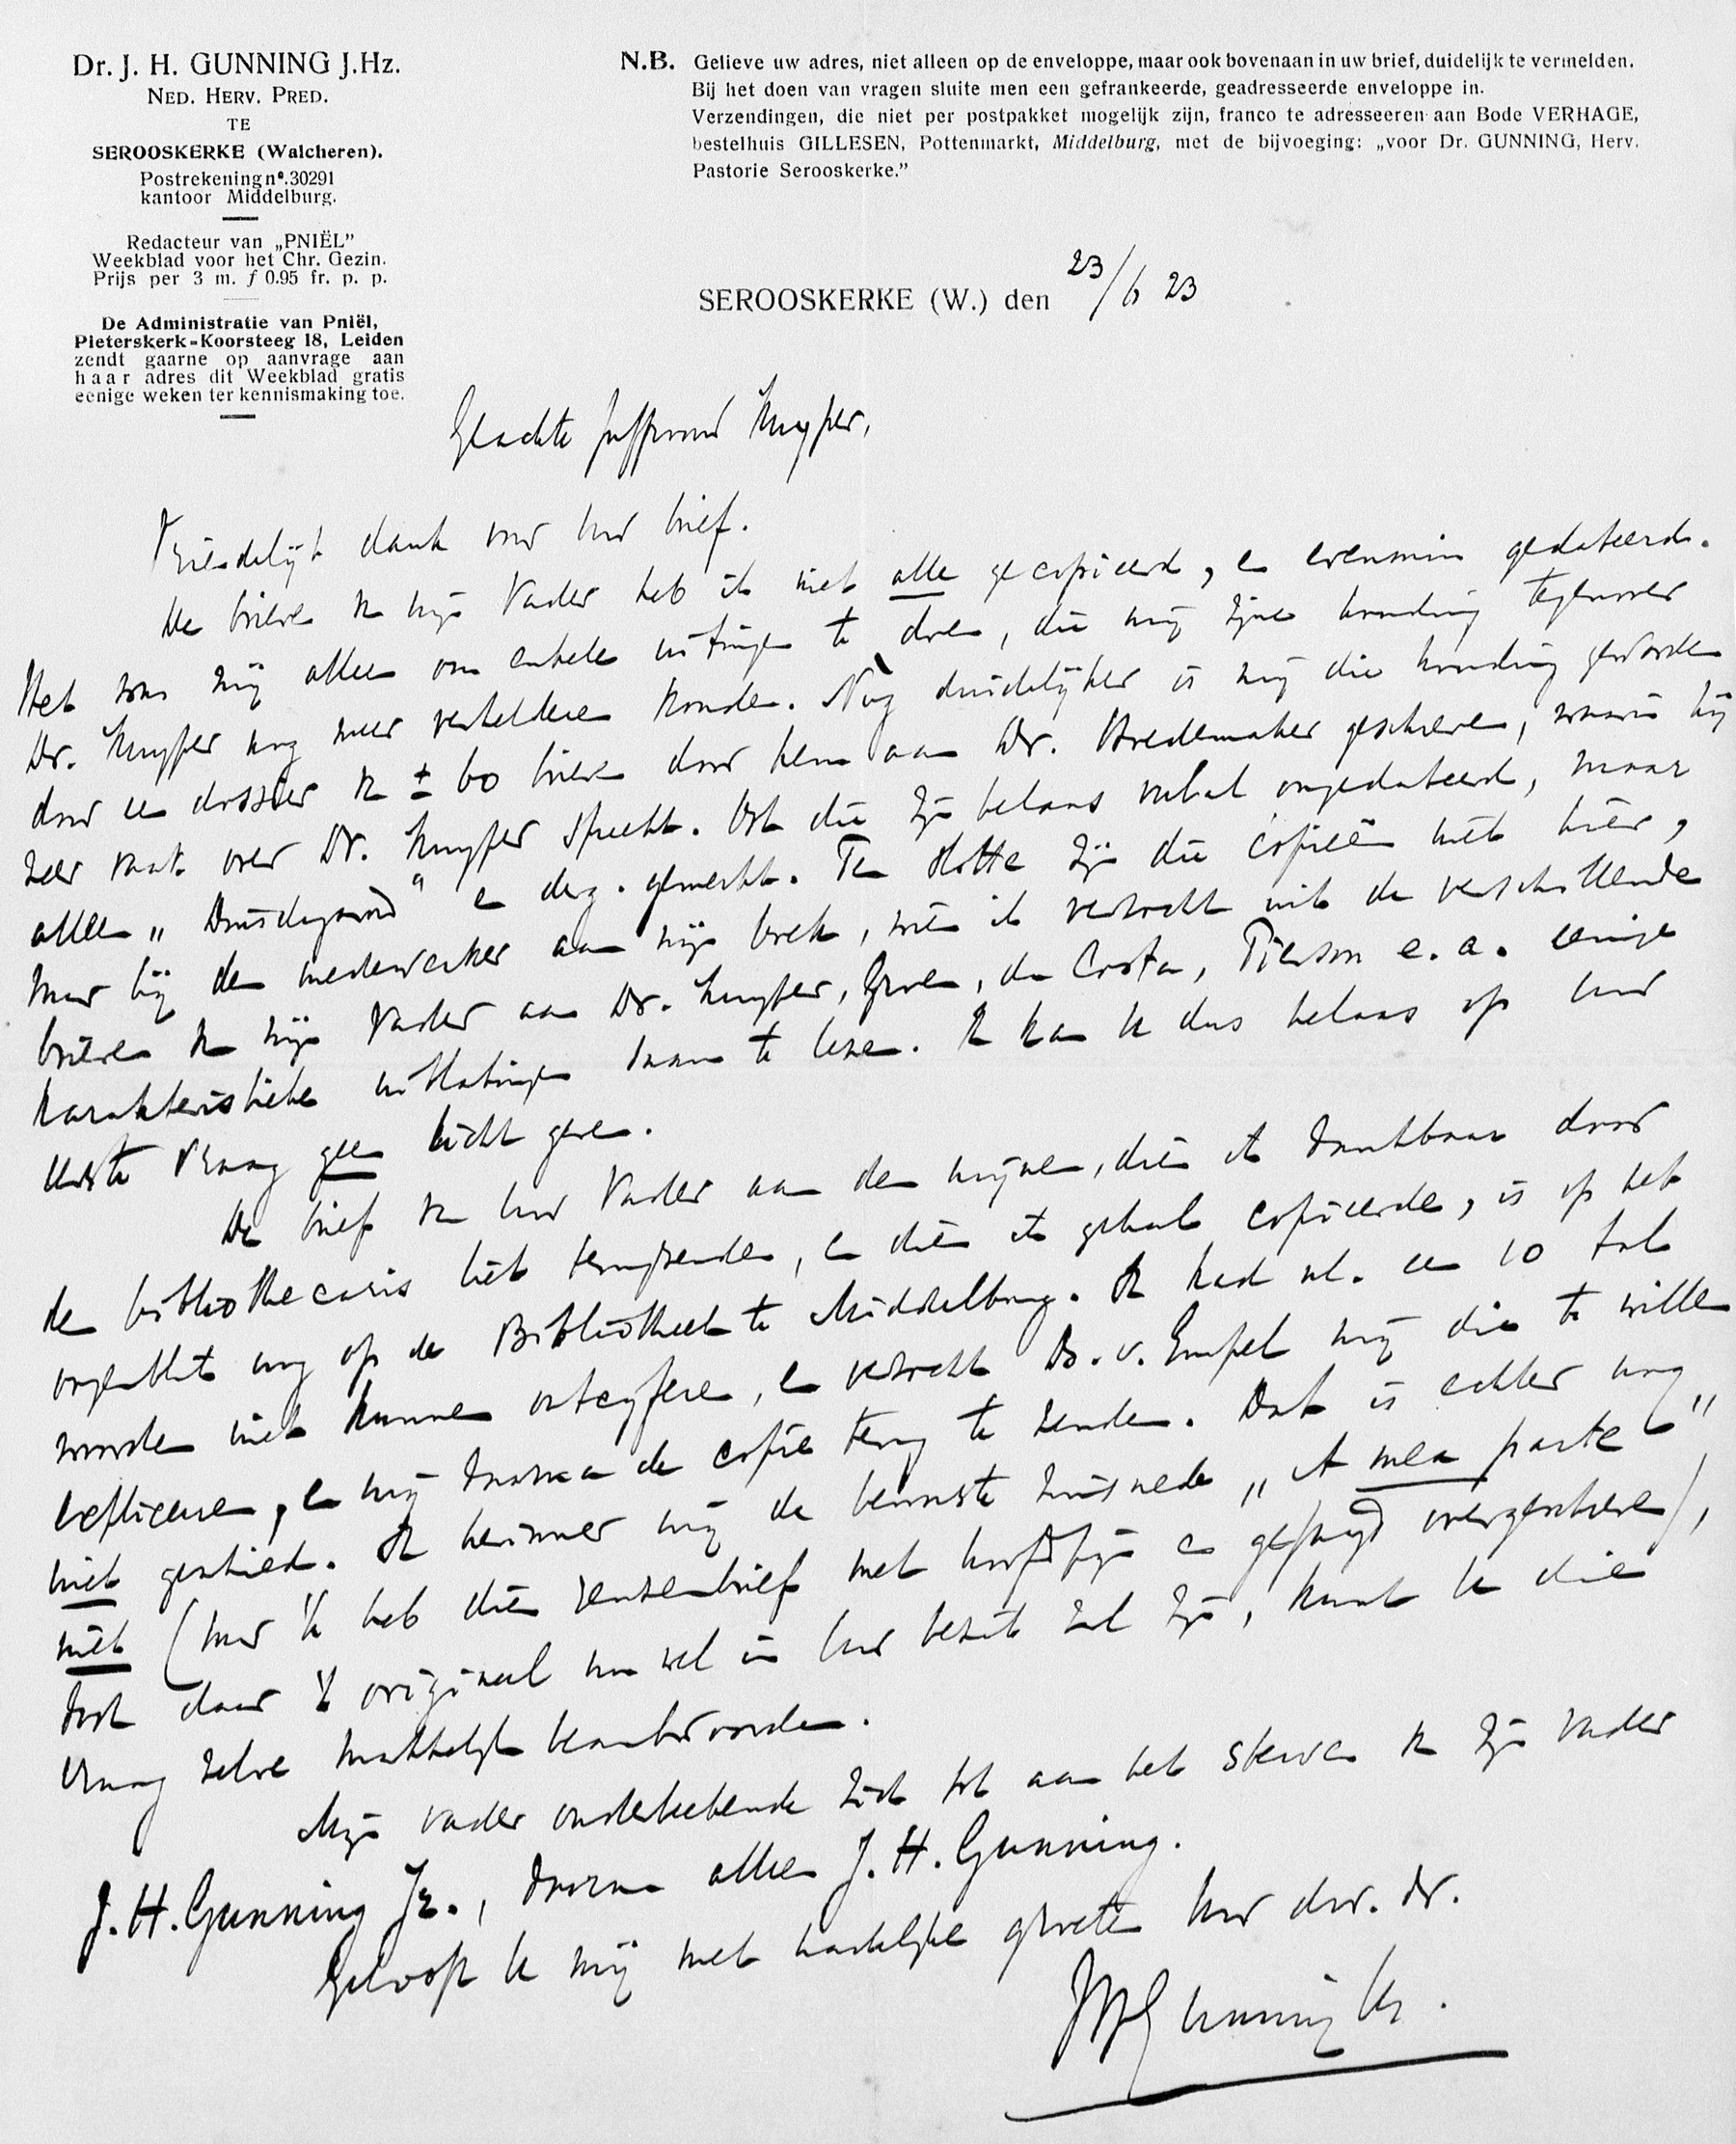 Dr. J. H. GUNNING J.Hz.
NED. HERV. PRED.
TE
SEROOSKERKE (Walcheren).
Postrekening nº. 30291
kantoor Middelburg.
Redacteur van „PNIËL”
Weekblad voor het Chr. Gezin.
Prijs per 3 m. ƒ 0.95 fr. p. p.
De Administratie van Pniël,
Pieterskerk-Koorsteeg 18, Leiden
zendt gaarne op aanvrage aan
haar adres dit Weekblad gratis
eenige weken ter kennismaking toe.
N.B. Gelieve uw adres, niet alleen op de enveloppe, maar ook bovenaan in uw brief, duidelijk te vermelden.
Bij het doen van vragen sluite men een gefrankeerde, geadresseerde enveloppe in.
Verzendingen, die niet per postpakket mogelijk zijn, franco te adresseeren aan Bode VERHAGE,
bestelhuis GILLESEN, Pottenmarkt, Middelburg, met de bijvoeging: „voor Dr. GUNNING, Herv.
Pastorie Serooskerke.”
SEROOSKERKE (W.) den 23/6 23
Geachte Juffrouw Kuyper,
Vriendelijk dank voor Uw brief.
De brieven v. mijn Vader heb ik niet alle gecopieerd, en evenmin gedateerd.
Het was mij alleen om enkele uitingen te doen, die mij zijne houding tegenover
Dr. Kuyper nog meer verhelderen konden. Nóg duidelijker is mij die houding geworden
door een dossier v. ± 60 brieven door hem aan Dr. Bredemaker geschreven, waarin hij
zeer vaak over Dr. Kuyper spreekt. Ook die zijn helaas meest ongedateerd, maar
alleen „Dinsdagavond” en derg. gemerkt. Ten slotte zijn die copieën niet hier,
maar bij den medewerker aan mijn boek, wien ik verzocht uit de verschillende
brieven v. mijn Vader aan Dr. Kuyper, Groen, da Costa, Pierson e. a. eenige
karakteristieke uitlatingen daarin te lezen. Ik kan U dus helaas op Uw
eerste vraag geen licht geven.
De brief v. Uw Vader aan den mijnen, dien ik dankbaar door
den bibliothecaris liet terugzenden, en dien ik geheel copieerde, is op het
oogenblik nog op de Bibliotheek te Middelburg. Ik had nl. een 10 tal
woorden niet kunnen ontcyferen, en verzocht Ds. v. Empel mij die te willen
en mij daarna de copie terug te zenden. Dat is echter nog
niet geschied. Ik herinner mij de bewuste zinsnede „A mea parte”
niet (maar ik heb dien reuzenbrief met hoofdpijn en gejaagd overgeschreven),
doch daar 't origineel nu wel in Uw bezit zal zijn, kunt U die
vraag zelve makkelijk beantwoorden.
Mijn vader onderteekende zich tot aan het sterven v. zijn vader
J. H. Gunning Jr., daarna alleen J. H. Gunning.
Geloof U mij met hartelijke groeten Uw dw. dr.
JHGunning JHz.